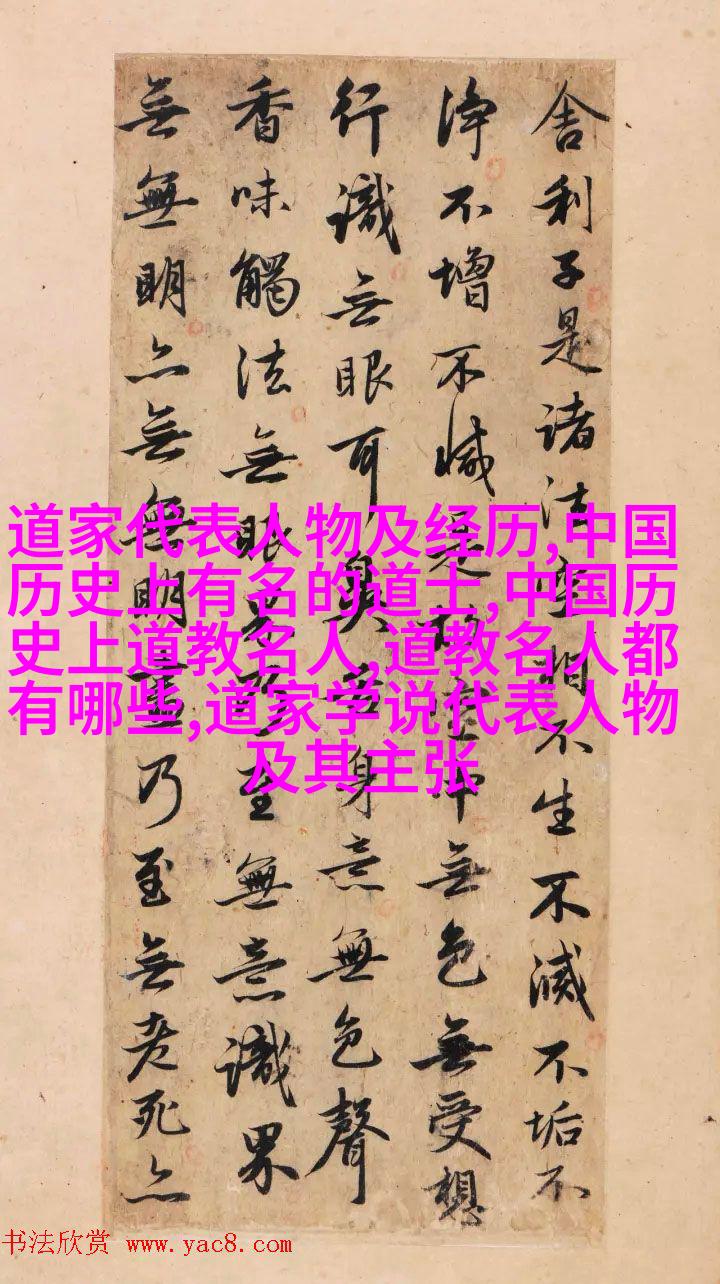 舍利子是諸法空相不生不滅不垢不
淨不增不減是故空中無色無受想
行識无眼耳鼻舌身意無色聲
香味觸法無眼界乃至無意識界
無無明亦無無明盡乃至無老死亦
道家代表人物及经历,中国
历史上有名的道士,中国历
史上道教名人,道教名人都
有哪些,道家学说代表人物
及其主张
书法欣赏 www.yac8.com